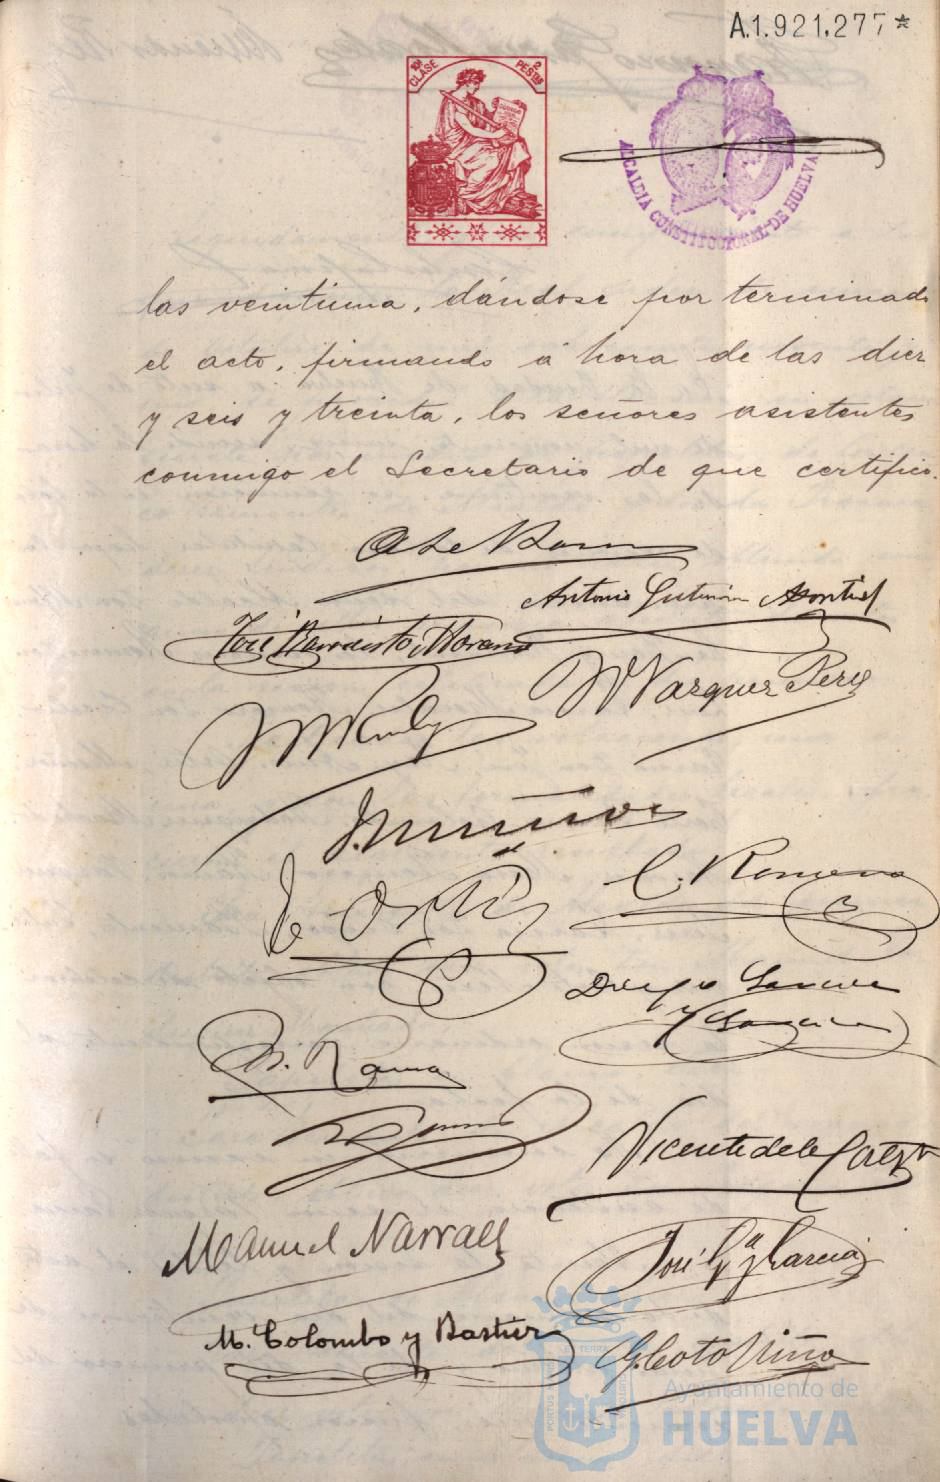 A.1.921.277*
10ª CLASE
2 PESTAS
ALCALDIA CONSTITUCIONAL DE HUELVA
las veintiuna, dándose por terminado
el acto, firmando á hora de las diez
y seis y treinta, los señores asistentes
conmigo el Secretario de que certifico.
Antonio Gutierrez Montiel
José Barreisto Moreno
M Vazquez Perez
J. Muñoz
C. Romero
Ortiz
Diego Garcia
y Garcia
Vicente de la Corte
Manuel Narvaez
José Gª y Garcia
M. Colombo y Bastier
G. Coto Niño
Ayuntamiento de
HUELVA